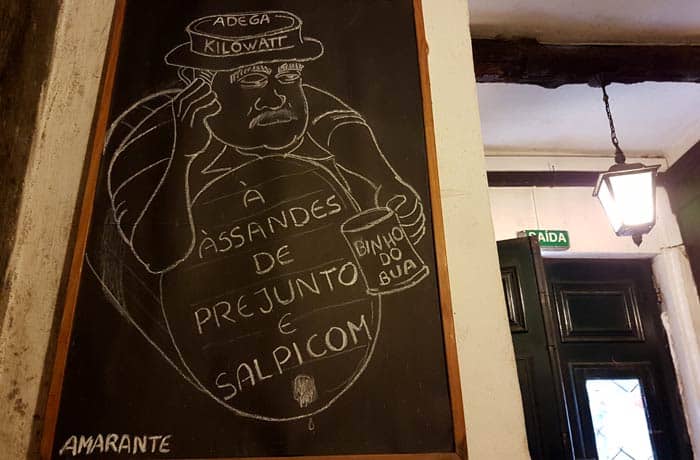 ADEGA
KILOWATT
À
ÀSSANDES
DE
PREJUNTO
E
SALPICOM
BINHO
DO
BUA
AMARANTE
SAÍDA